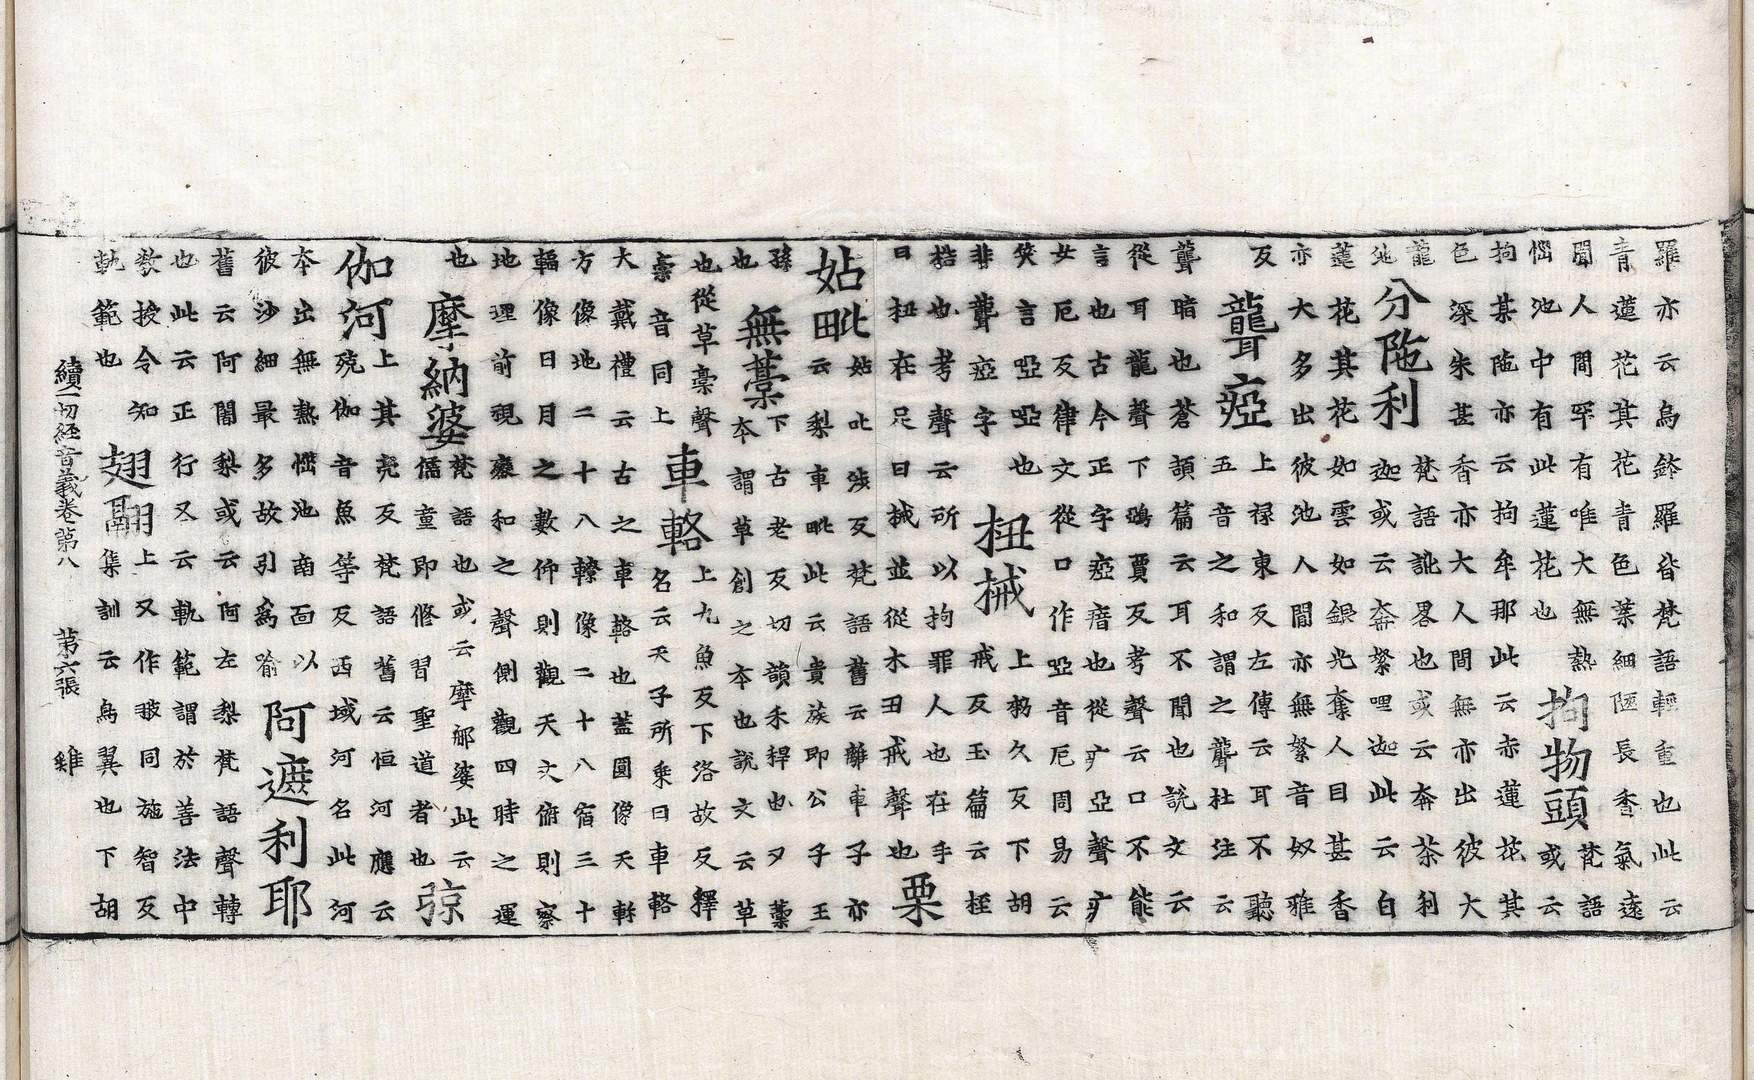 羅亦云烏鉢羅皆梵語輕重也此云
青蓮花其花青色葉細陿長香氣遠
聞人間罕有唯大無熱
惱池中有此蓮花也
拘物頭
梵語
或云
拘某陁亦云拘牟那此云赤蓮花其
色深朱甚香亦大人間無亦出彼大
龍
池
分陁利
梵語訛畧也或云奔茶利
迦或云奔絮哩迦此云白
蓮花其花如雲如銀光奪人目甚香
亦大多出彼池人間亦無絮音奴雅
反
聾瘂
上禄東反左傳云耳不聽
五音之和謂之聾杜注云
聾暗也蒼頡篇云耳不聞也說文云
從耳龍聲下鵶賈反考聲云口不能
言也古今正字瘂瘖也從疒亞聲疒
女厄反律文從口作啞音厄周易云
笑言啞啞也
非聾瘂字
杻械
上久反下胡
戒反玉篇云桎
梏也考聲云所以拘罪人也在手
曰杻在足曰械並從木丑戒聲也
栗姑毗
姑吐涉反梵語舊云離車子亦
云梨車毗此云貴族即公子王
孫
也
無藁
下古老反切韻禾稈也又藁
本謂草創之本也說文云草
也從草槀聲
槀音同上
車輅
上九魚反下洛故反釋
名云天子所乘曰車輅
大戴禮云古之車輅也蓋圓像天軫
方像地二十八轑像二十八宿三十
輻像日月之數仰則觀天文俯則察
地理前視鸞和之聲側觀四時之運
也
摩納婆
梵語也或云摩那婆此云
儒童即修習聖道者也
殑伽河
上其亮反梵語舊云恒河應云
殑伽音魚等反西域河名此河
本出無熱惱池南面以
彼沙細最多故引為喻
阿遮利耶
舊云阿闍梨或云阿左梨梵語聲轉
也此云正行又云軌範謂於善法中
教授令知
軌範也
翅翮
上又作同施智反
集訓云鳥翼也下胡
續一切經音義卷第八 第六張 雞